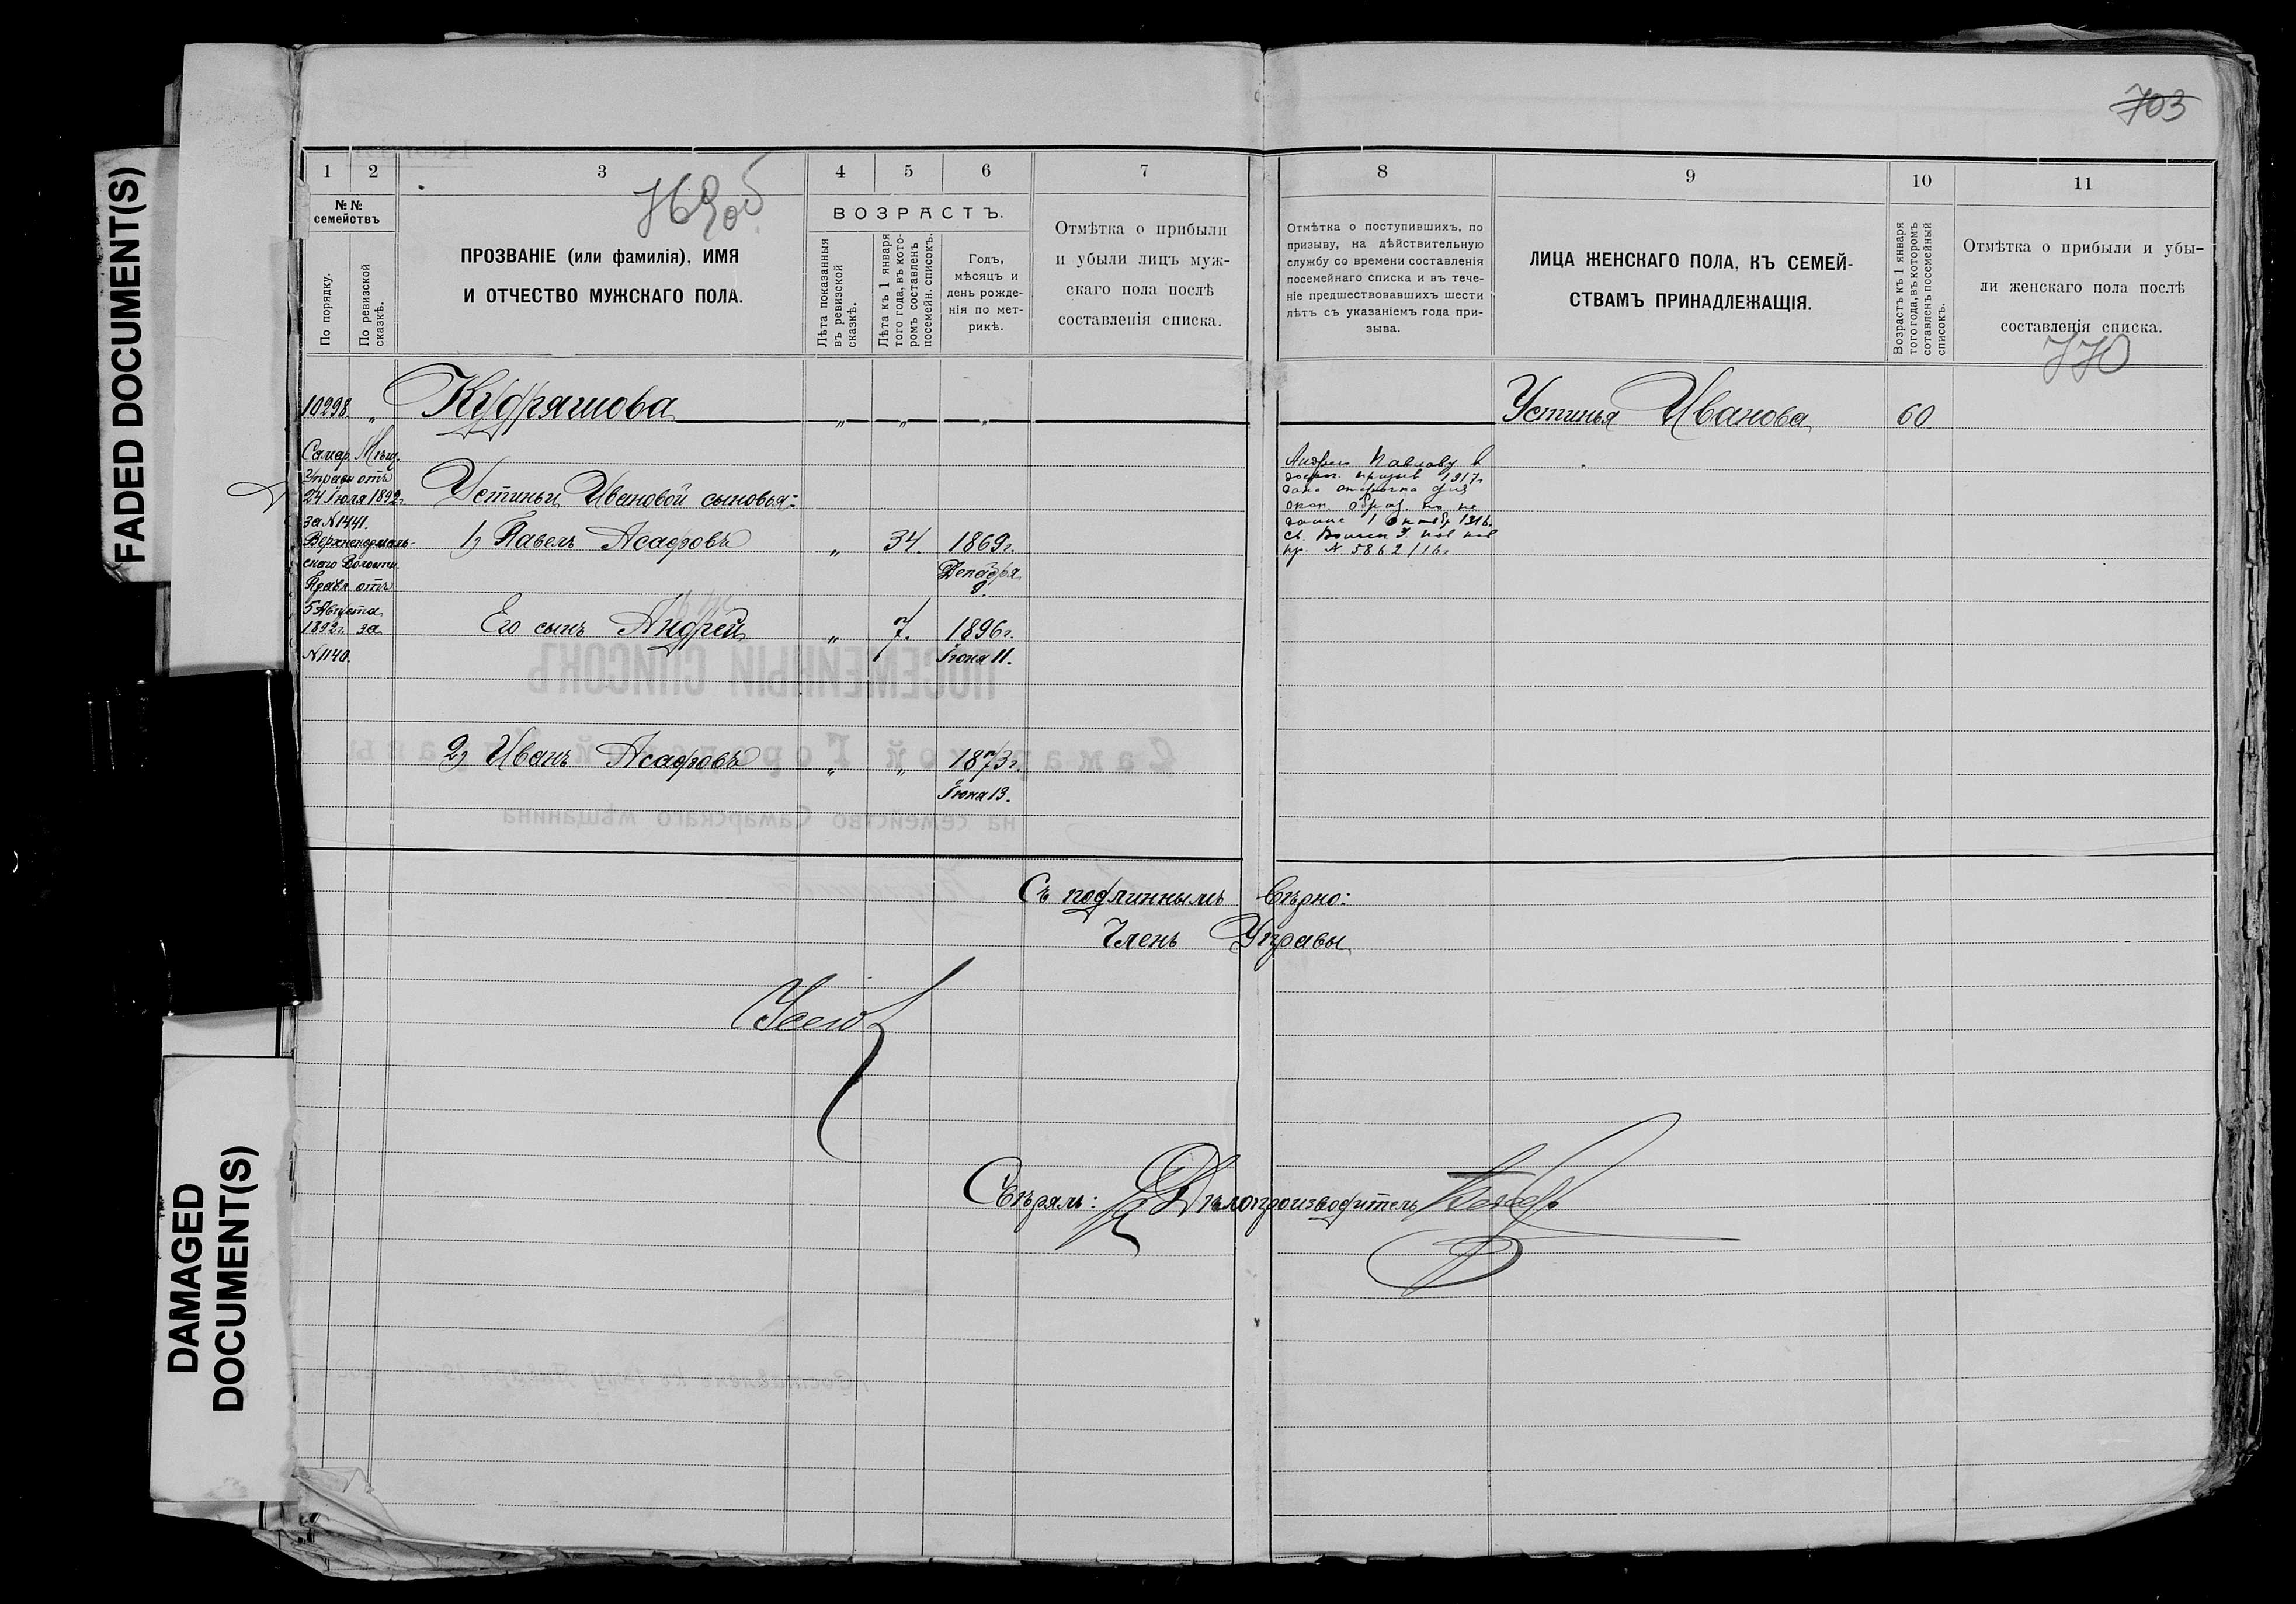 FADED DOCUMENT(S)
DAMAGED
DOCUMENT(S)
703
1 2 3 4 5 6 7
№ №
семействъ
По порядку.
По ревизской
сказкѣ.
ПРОЗВАНІЕ (или фамилія), ИМЯ
И ОТЧЕСТВО МУЖСКАГО ПОЛА.
ВОЗРАСТЪ.
Лѣта показанныя
въ ревизской
сказкѣ.
Лѣта къ 1 января
того года, въ кото-
ромъ составленъ
посемейн. списокъ.
Годъ,
мѣсяцъ и
день рожде-
нія по мет-
рикѣ.
Отмѣтка о прибыли
и убыли лицъ муж-
скаго пола послѣ
составленія списка.
8 9 10 11
Отмѣтка о поступившихъ, по
призыву, на дѣйствительную
службу со времени составленія
посемейнаго списка и въ тече-
ніе предшествовавшихъ шести
лѣтъ съ указаніемъ года при-
зыва.
ЛИЦА ЖЕНСКАГО ПОЛА, КЪ СЕМЕЙ-
СТВАМЪ ПРИНАДЛЕЖАЩІЯ.
Возрастъ къ 1 января
того года, въ которомъ
составленъ посемейный
списокъ.
Отмѣтка о прибыли и убы-
ли женскаго пола послѣ
составленія списка.
10298 „ Кудряшова „ „ „ Устинья Иванова 60
Самар. Мѣщ.
Управ. отъ
24 Іюля 1892г.
за № 1441.
Волостн.
Правл. отъ
5 Августа
1892г. за
№ 1140.
Устиньи Ивановой сыновья:
1) Павелъ Асафовъ „ 34. 1869г.
Декабря
9.
Его сынъ Андрей „ 7. 1896г.
Іюня 11.
2) Иванъ Асафовъ „ „ 1873г.
Іюня 13.
Андрею Павлову в
призыв 1917г
дана отсрочка для
окон. образ. по
1 октяб 1916г.
№ 5862/16г
ПОСЕМЕЙНЫЙ СПИСОКЪ
Самарской Городской Управы
на семейство Самарскаго мѣщанина
Съ подлиннымъ вѣрно:
Членъ Управы
Свѣрялъ: Дѣлопроизводитель